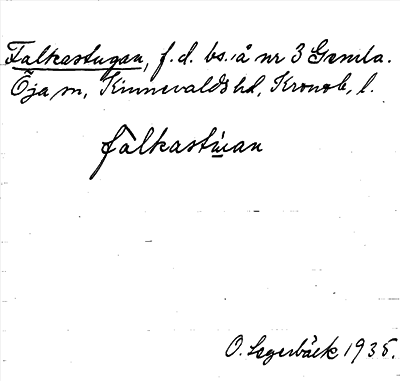 Falkastugan, f.d. bs. å nr 3 Gemla.
Öja sn, Kinnevalds hd, Kronob. l.
falkastúan
O. Lagerbäck 1935.